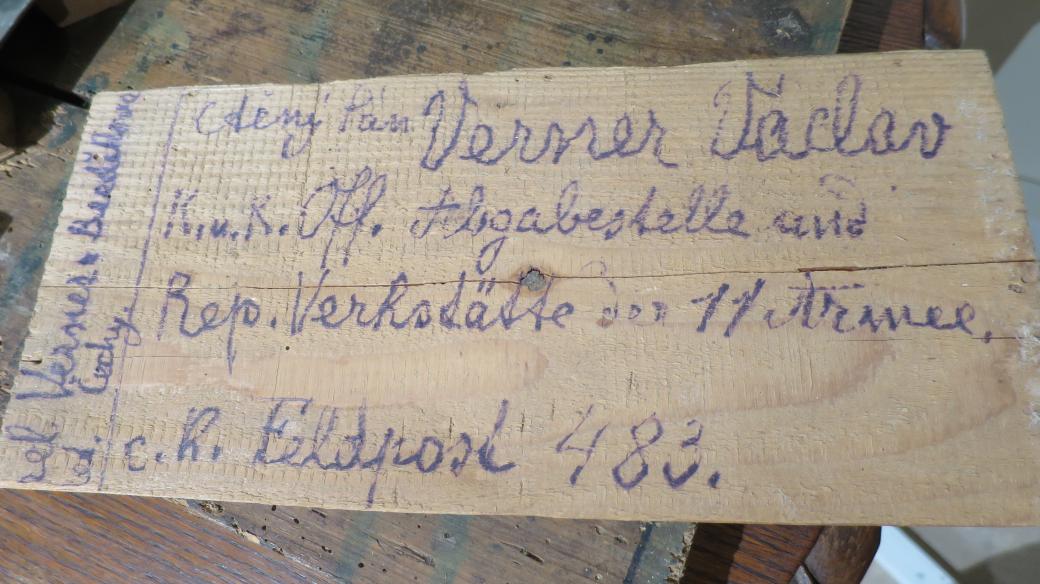 Ctěný Pán Verner Václav
K.u.K. Off. Abgabestelle und
Rep. Verkstätte der 11 Armee.
c.k. Feldpost 483.
Verner
Čechy.